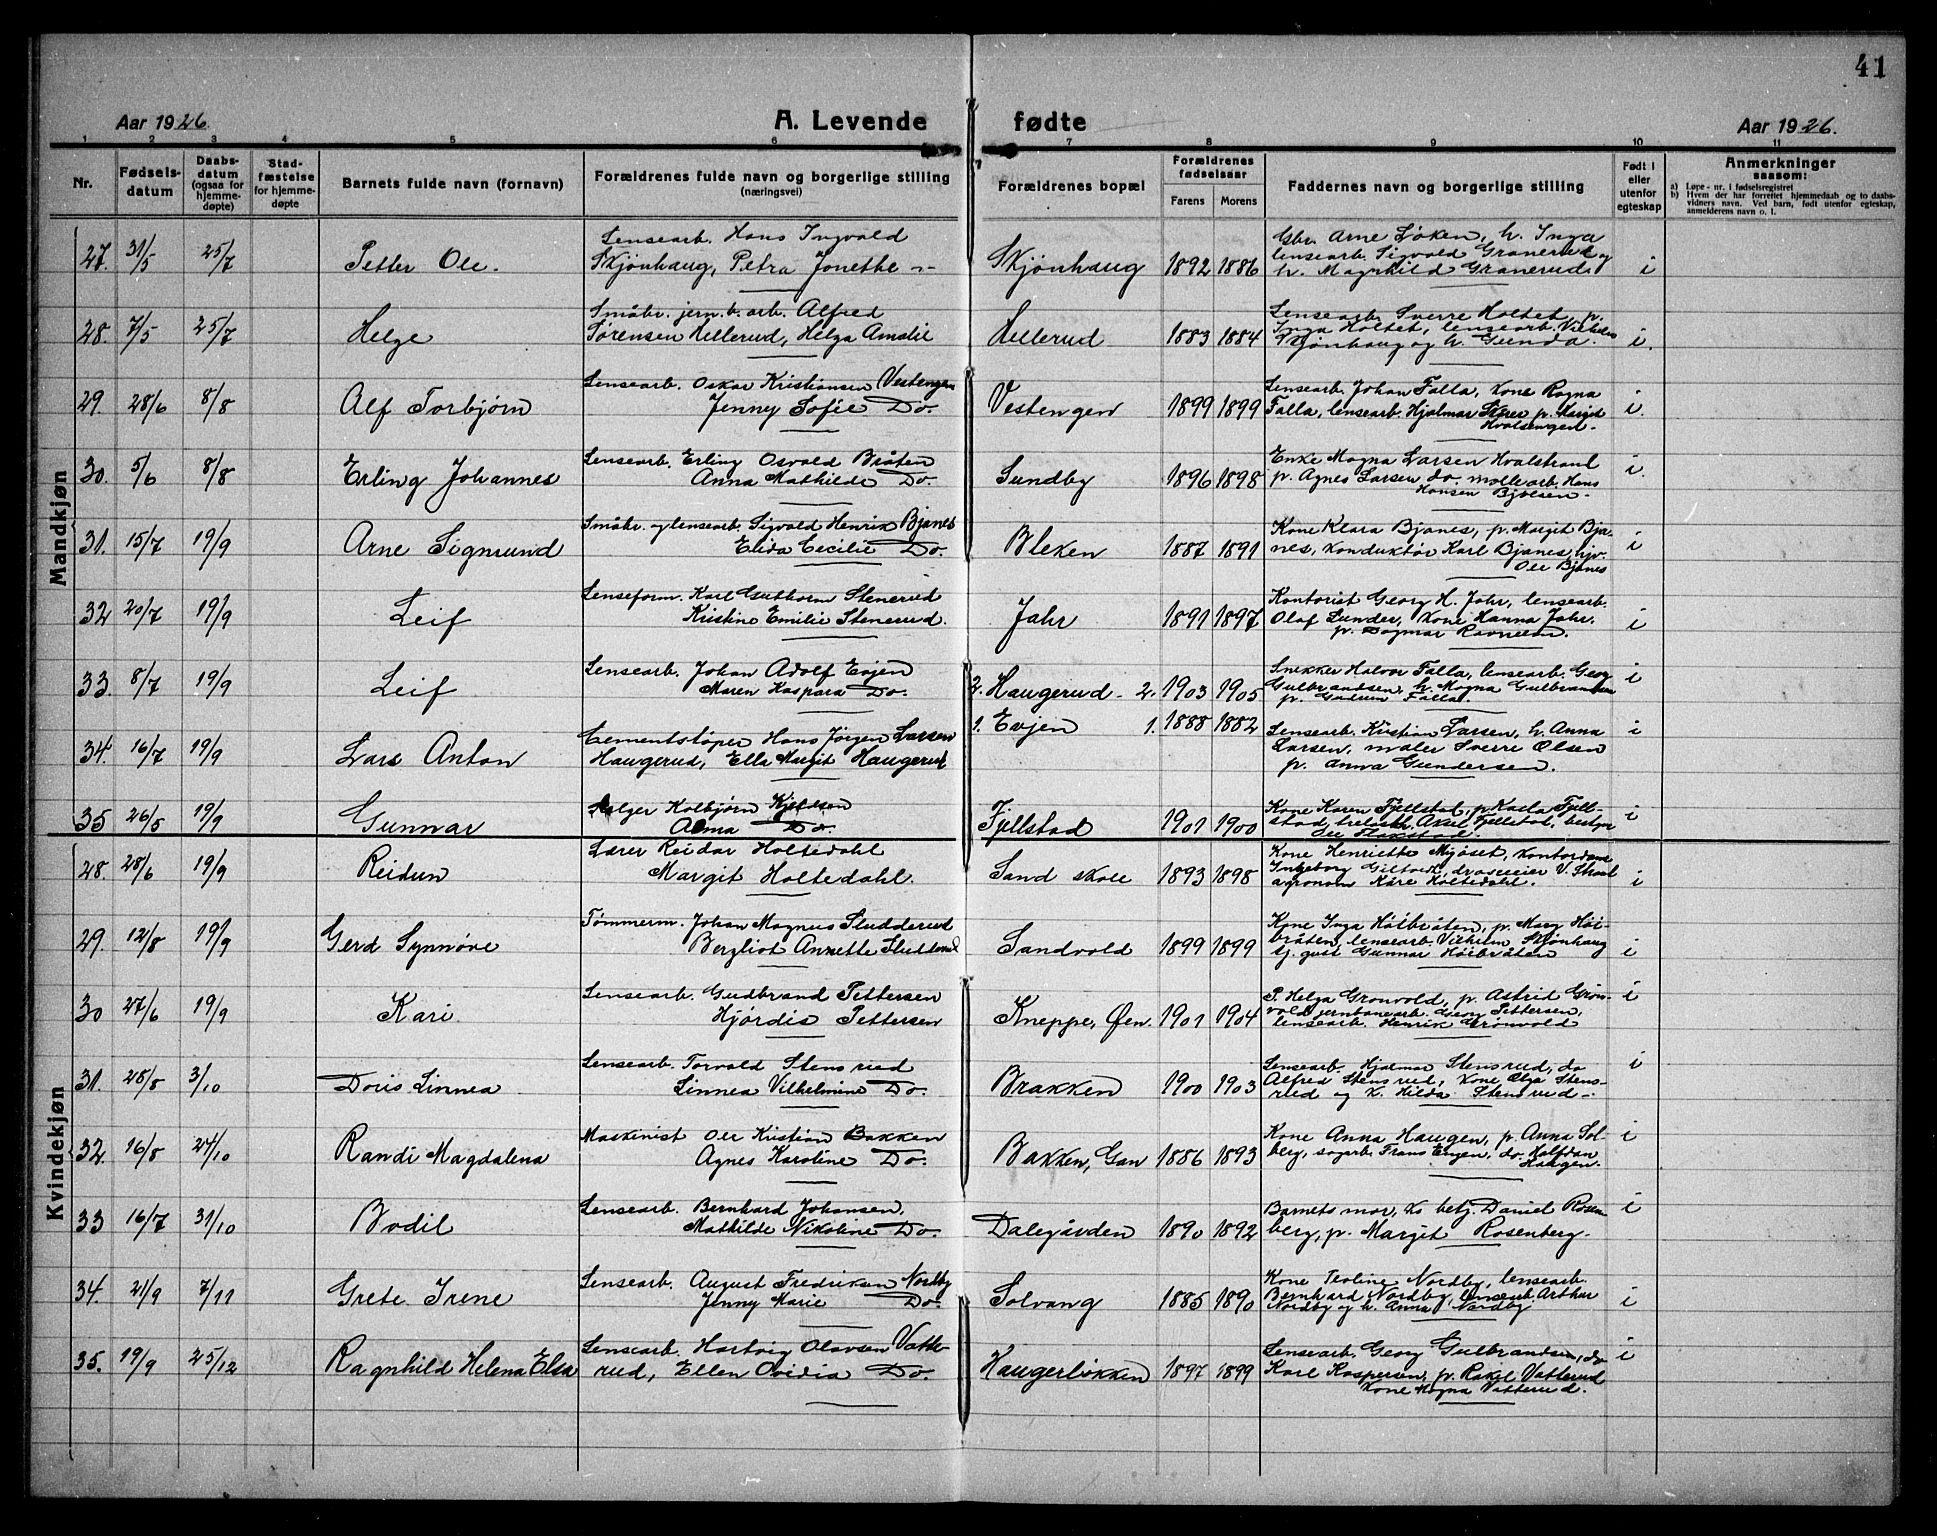 41
Aar 1926.
A. Levende fødte
Aar 1926.
1 2 3 4 5 6 7 8 9 10 11
Nr.
Fødsels-
datum
Daabs-
datum
(ogsaa for
hjemme-
døpte)
Stad-
fæstelse
for hjemme-
døpte
Barnets fulde navn (fornavn)
Forældrenes fulde navn og borgerlige stilling
(næringsvei)
Forældrenes bopæl
Forældrenes
fødselsaar
Farens
Morens
Faddernes navn og borgerlige stilling
Født i
eller
utenfor
egteskap
Anmerkninger
saasom:
a) Løpe-nr. i fødselsregistret
b) Hvem der har forrettet hjemmedaab og to daabs-
vidners navn. Ved barn, født utenfor egteskap,
anmelderens navn o. l.
Mandkjøn
27. 31/5 25/7 Petter Ole.
Lensearb. Hans Ingvald
Skjønhaug, Petra Jonethe -"-
Skjønhaug 1892 1886
Gbr. Arne Løken, h. Inga
lensearb. Sigvald Granerud og
h. Magnhild Granerud. i
28. 7/5 25/7 Helge
Småbr. jern.b.arb. Alfred
Sørensen Hellerud, Helga Amalie
Hellerud 1883 1884
Lensearb. Sverre Holtet, p.
Inga Holtet, lensearb. Vilhelm
Skjønhaug og h. Gunda. i.
29. 28/6 8/8 Alf Torbjørn
Lensearb. Oskar Kristiansen Vestengen
Jenny Sofie Do.
Vestengen 1899 1899
Lensearb. Johan Falla, kone Ragna
Falla, lensearb. Hjalmar p. Margit
Hvalsengen. i.
30. 5/6 8/8 Erling Johannes
Lensearb. Erling Osvald Bråten
Anna Mathilde Do.
Sundby 1896 1898
Enke Magna Larsen Hvalstrand
p. Agnes Larsen do. møllearb. Hans
Hansen Bjølsen. i.
31. 15/7 19/9 Arne Sigmund
Småbr. og lensearb. Sigvald Henrik Bjanes
Elida Cecilie Do.
Bleken 1887 1891
Kone Klara Bjanes, p. Margit Bja-
nes, konduktør Karl Bjanes, hjv.
Ole Bjanes i
32 20/7 19/9 Leif
Lenseform. Karl Guthorm Stenerud
Kristine Emilie Stenerud.
Jahr 1891 1897
Kontorist Georg H. Jahr, lensearb.
Olaf Lunder, kone Hanna Jahr.
p. Dagmar i
33. 8/7 19/9 Leif
Lensearb. Johan Adolf Evjen
Maren Kaspara Do.
2. Haugerud - 2. 1903 1905
Snekker Halvor Falla, lensearb. Georg
Gulbrandsen, h. Magna Gulbrandsen
p. Gudrun Falla. i
34. 16/7 19/9 Lars Anton
Cementstøper Hans Jørgen Larsen
Haugerud, Ella Margit Haugerud
1. Evjen 1. 1888 1882
Lensearb. Kristian Larsen, h. Anna
Larsen, maler Sverre Olsen
p. Anna Gundersen. i
35 26/5 19/9 Gunnar
Selger Kolbjørn Kjeldsen
Alma Do.
Fjellstad 1901 1900
Kone Karen Fjellstad, p. Karla Fjell-
stad, Aksel Fjellstad, bestyr
i
Kvindekjøn
28. 28/6 19/9 Reidun
Lærer Reidar Holtedahl
Margit Holtedahl.
Sand skole 1893 1898
Kone Henriette Mjøset, kontordame
Ingeborg V. Strand
agronom Kåre Holtedahl. i
29. 12/8 19/9 Gerd Synnøve
Tømmerm. Johan Magnus Sludderud
Bergliot Annette Sludderud
Sandvold 1899 1899
Kone Inga Høibråten, p. Mary Høi-
bråten, lensearb. Vilhelm Skjønhaug
tj.gutt Gunnar Høibråten i
30 27/6 19/9 Kari
Lensearb. Gudbrand Pettersen
Hjørdis Pettersen
Kneppe, Øen. 1901 1904
P. Helga Grønvold, p. Astrid Grøn-
vold jernbanearb. Georg Pettersen,
lensearb. Henrik Grønvold i
31. 28/8 3/10 Doris Linnea
Lensearb. Torvald Stensrud
Linnea Vilhelmine Do.
Brakken 1900 1903
Lensearb. Hjalmar Stensrud, do
Alfred Stensrud, kone Olga Stens-
rud og k. Hilda Stensrud. i
32. 16/8 24/10 Randi Magdalena
Maskinist Ole Kristian Bakken
Agnes Karoline Do.
Bakken, Gan 1886 1893
Kone Anna Haugen, p. Anna Sol-
berg, sagarb. Frans Engen, do. Halfdan
Haugen. i
33 16/7 31/10 Bodil
Lensearb. Bernhard Johansen,
Mathilde Nikoline Do.
Dalegården 1890 1892
Barnets mor, ks betj. Daniel Rosen
berg, p. Margit Rosenberg. i
34. 21/9 7/11 Grete Irene
Lensearb. August Fredriksen Nordby
Jenny Marie Do.
Solvang 1885 1890
Kone Teoline Nordby, lensearb.
Bernhard Nordby, lensearb Arthur
Nordby og h. Anna Nordby i
35. 19/9 25/12 Ragnhild Helena Elsa
Lensearb. Hartvig Olavsen Vatte-
rud, Ellen Ovidia Do.
Haugerløkken 1897 1899
Lensearb. Georg Gulbrandsen, do
Karl Kaspersen, p. Rakel Vatterud
kone Magna Vatterud. i